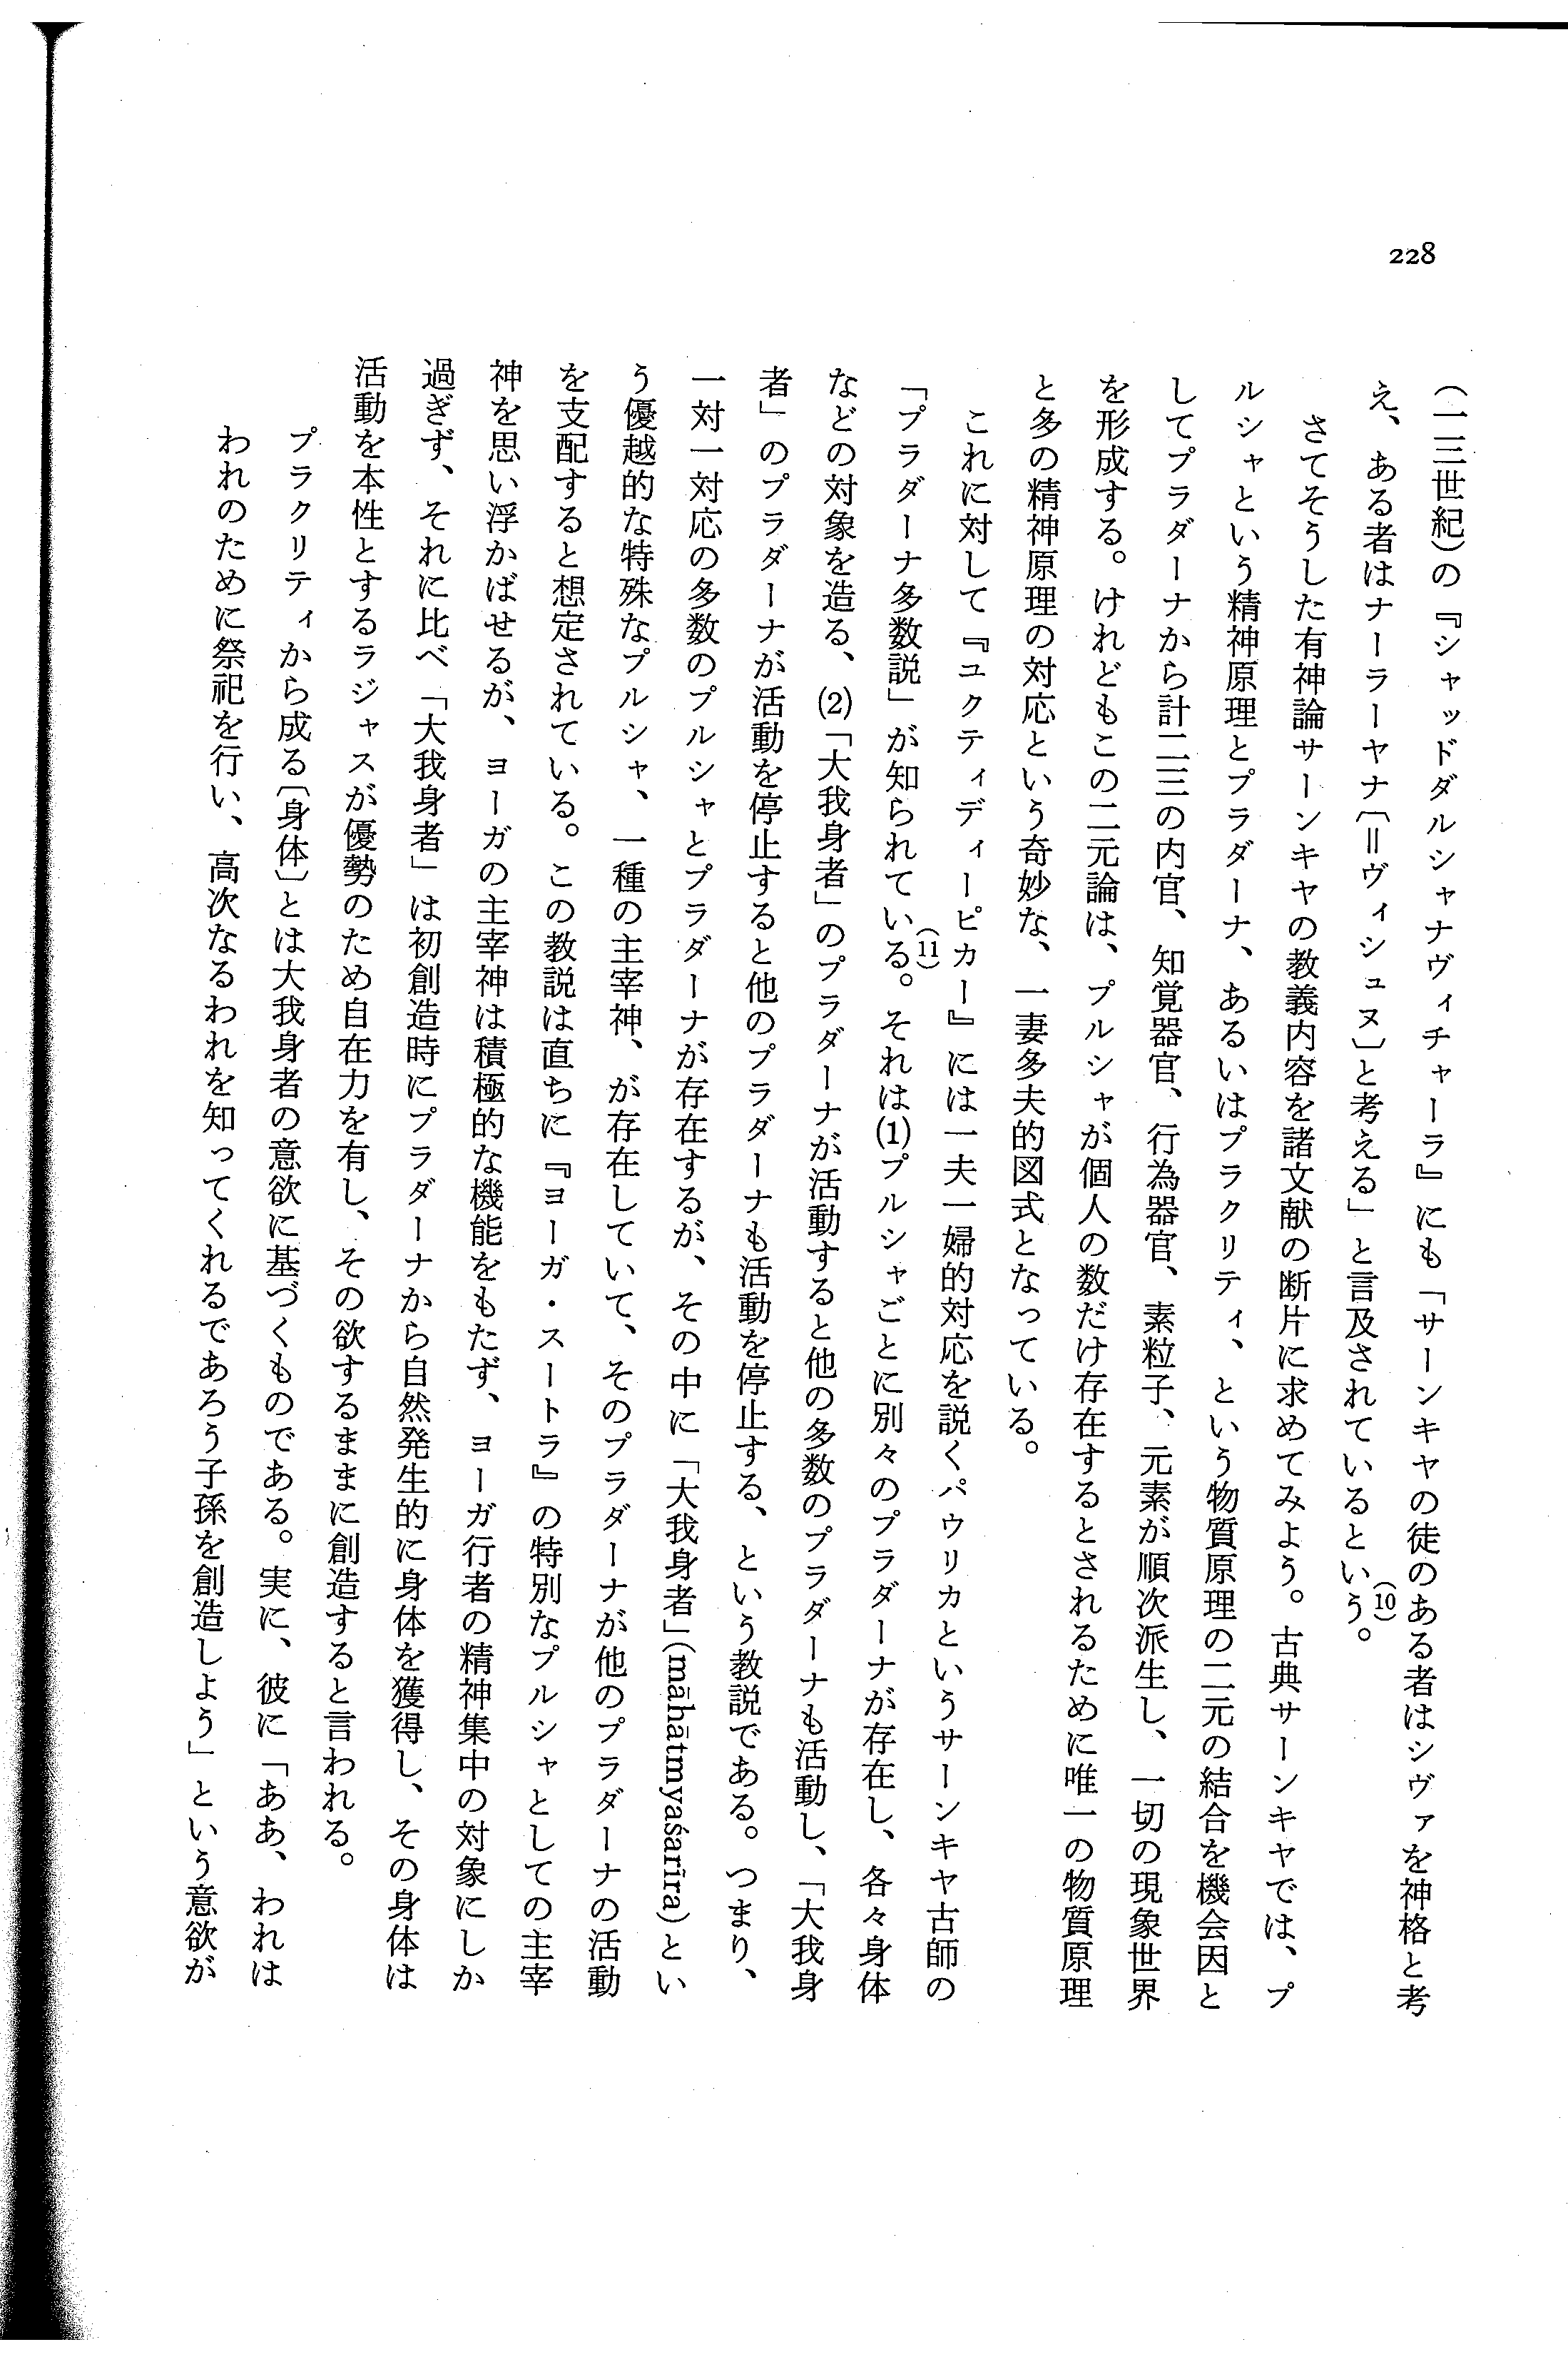 228
(一三世紀)の『シャッドダルシャナヴィチャーラ』にも「サーンキヤの徒のある者はシヴァを神格と考
え、ある者はナーラーヤナ〔=ヴィシュヌ〕と考える」と言及されているという。(10)
さてそうした有神論サーンキヤの教義内容を諸文献の断片に求めてみよう。古典サーンキヤでは、プ
ルシャという精神原理とプラダーナ、あるいはプラクリティ、という物質原理の二元の結合を機会因と
してプラダーナから計二三の内官、知覚器官、行為器官、素粒子、元素が順次派生し、一切の現象世界
を形成する。けれどもこの二元論は、プルシャが個人の数だけ存在するとされるために唯一の物質原理
と多の精神原理の対応という奇妙な、一妻多夫的図式となっている。
これに対して『ユクティディーピカー』には一夫一婦的対応を説くパウリカというサーンキヤ古師の
「プラダーナ多数説」が知られている。(11)それは(1)プルシャごとに別々のプラダーナが存在し、各々身体
などの対象を造る、(2)「大我身者」のプラダーナが活動すると他の多数のプラダーナも活動し、「大我身
者」のプラダーナが活動を停止すると他のプラダーナも活動を停止する、という教説である。つまり、
一対一対応の多数のプルシャとプラダーナが存在するが、その中に「大我身者」(māhātmyaśarīra)とい
う優越的な特殊なプルシャ、一種の主宰神、が存在していて、そのプラダーナが他のプラダーナの活動
を支配すると想定されている。この教説は直ちに『ヨーガ・スートラ』の特別なプルシャとしての主宰
神を思い浮かばせるが、ヨーガの主宰神は積極的な機能をもたず、ヨーガ行者の精神集中の対象にしか
過ぎず、それに比べ「大我身者」は初創造時にプラダーナから自然発生的に身体を獲得し、その身体は
活動を本性とするラジャスが優勢のため自在力を有し、その欲するままに創造すると言われる。
プラクリティから成る〔身体〕とは大我身者の意欲に基づくものである。実に、彼に「ああ、われは
われのために祭祀を行い、高次なるわれを知ってくれるであろう子孫を創造しよう」という意欲が